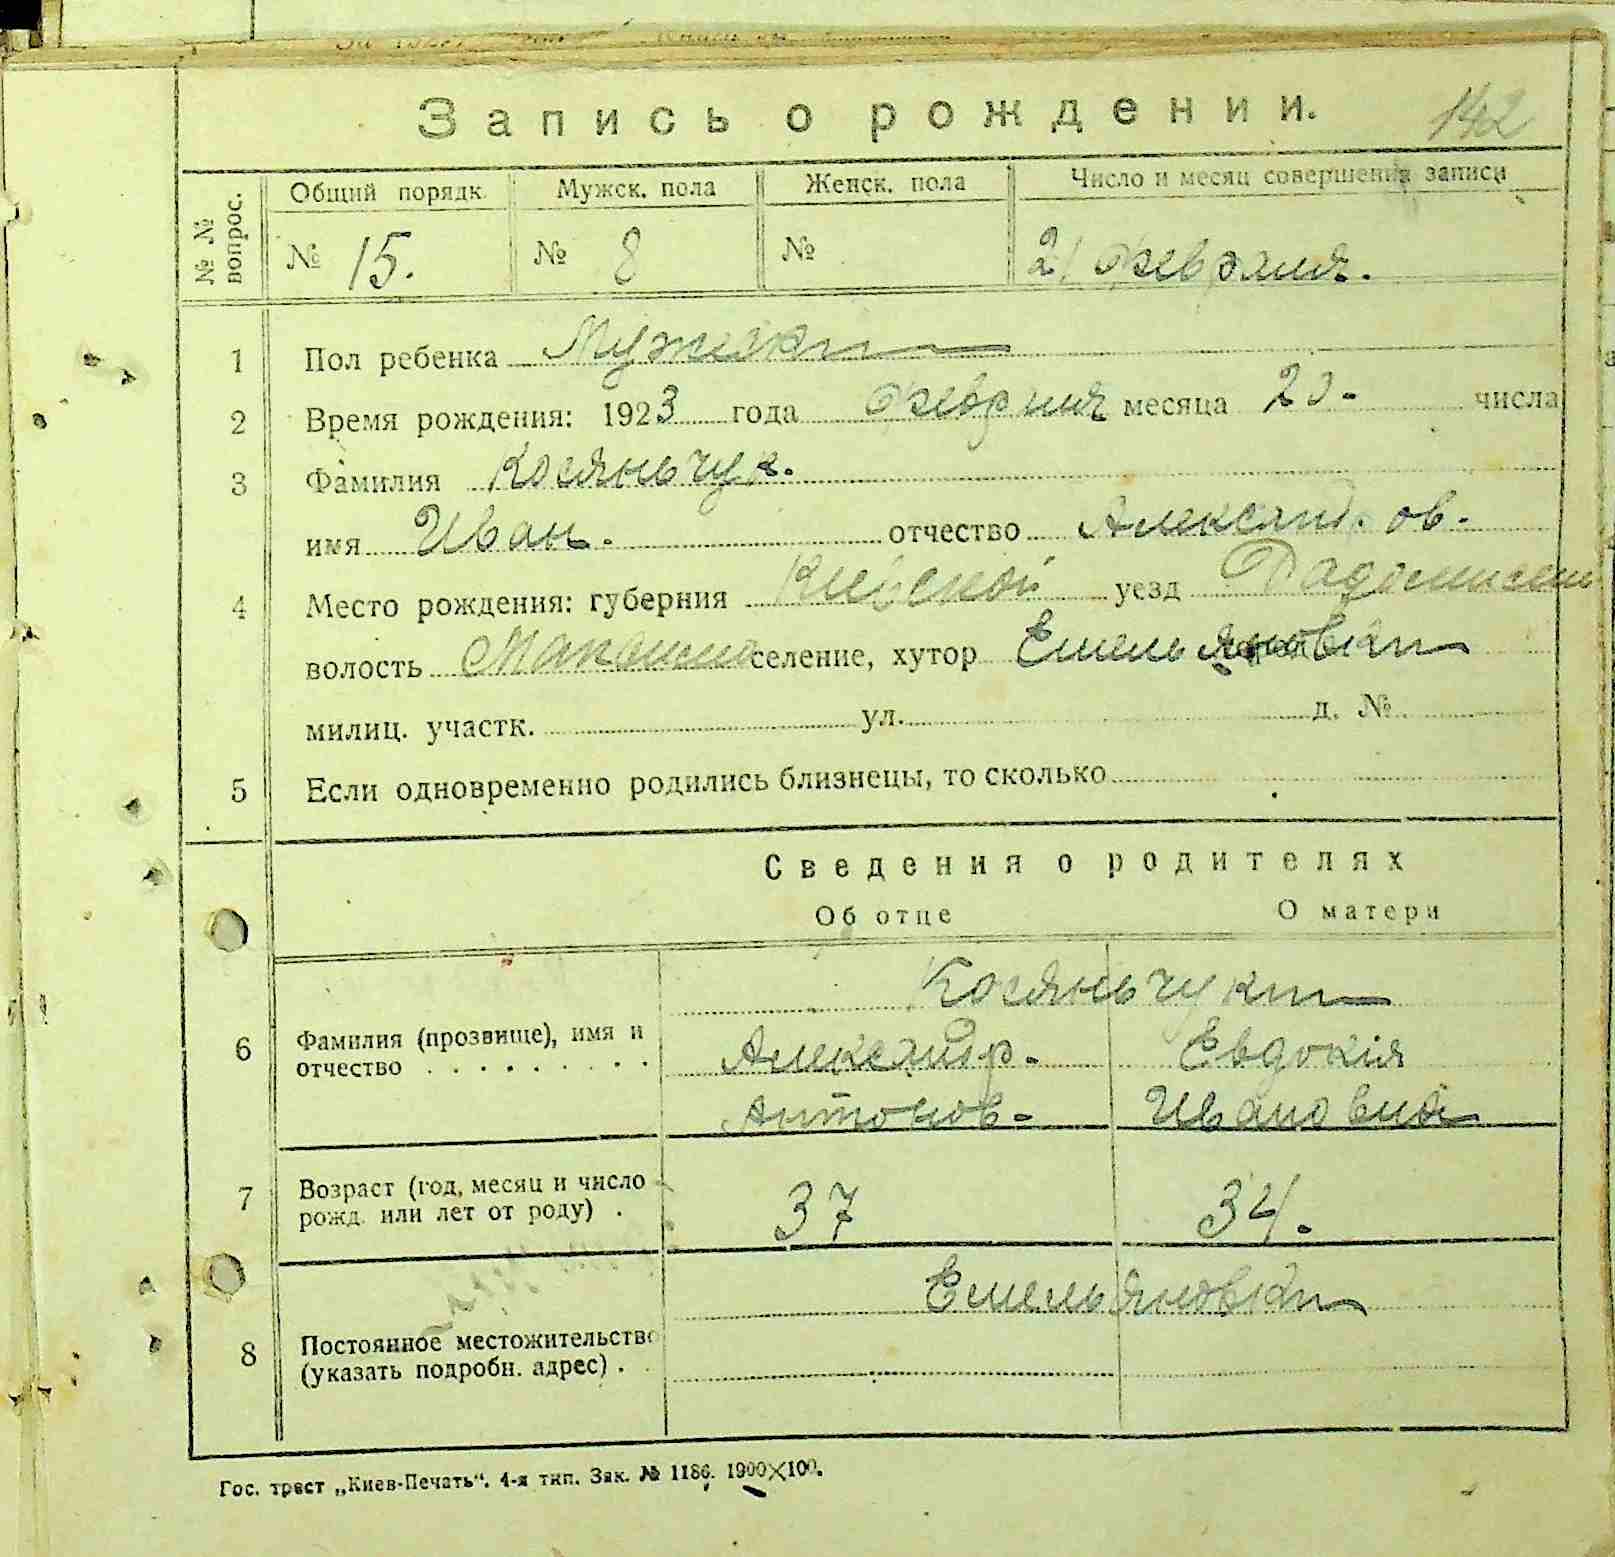 Запись о рождении. 142
№ № вопрос. Общий порядк. Мужск. пола Женск. пола Число и месяц совершения записи
№ 15. № 8 № 21 Февраля.
1 Пол ребенка Мужск
2 Время рождения: 1923 года Февраля месяца 20. числа
3 Фамилия Косяньчук.
имя Иван. отчество Александ. ов.
4 Место рождения: губерния Киевской уезд
волость селение, хутор Емельяновка
милиц. участк. ул. д. №
5 Если одновременно родились близнецы, то сколько
Сведения о родителях
Об отце О матери
Косяньчук
6 Фамилия (прозвище), имя и отчество Александр. Евдокія
Антонов- Ивановна
7 Возраст (год, месяц и число рожд. или лет от роду) . 37 34.
Емельяновка
8 Постоянное местожительство (указать подробн. адрес) .
Гос. трест „Киев-Печать“. 4-я тип. Зак. № 1186. 1900×100.